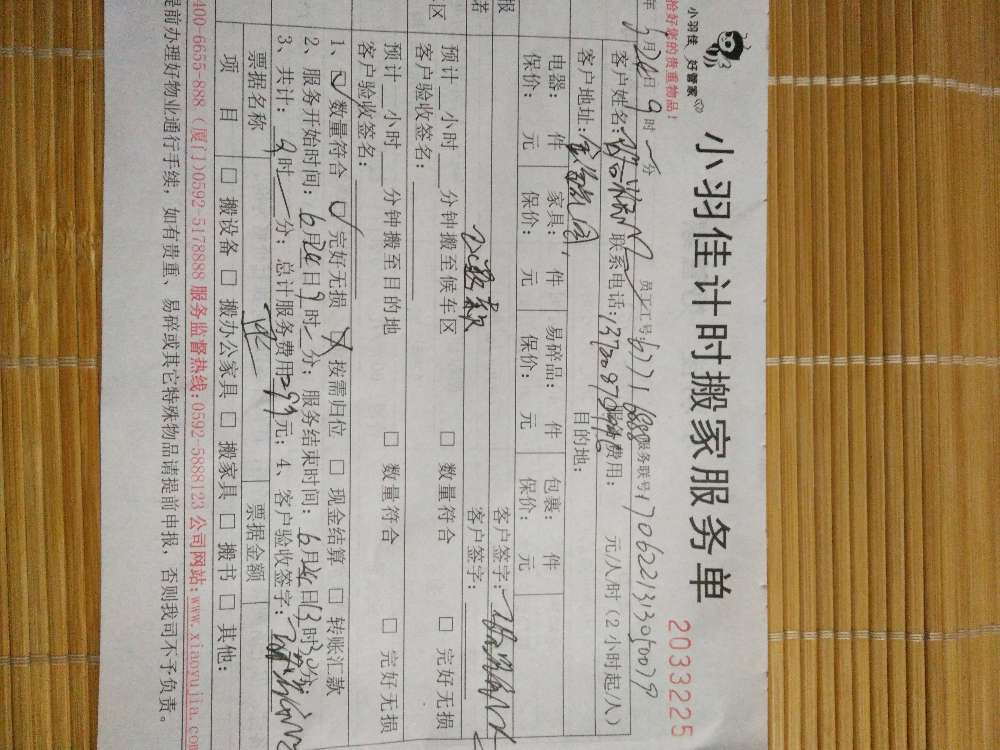 小羽佳 好管家
小羽佳计时搬家服务单
2033225
拾好您的贵重物品!
年 月24日9时 分 员工工号 服务联号1706221313050079
客户姓名: 联系电话: 费用: 元/人/时(2小时起/人)
客户地址: 目的地:
电器: 件 家具: 件 易碎品: 件 包裹: 件
保价: 元 保价: 元 保价: 元 保价: 元
报 客户签字:
诺 客户签字:
区 预计 小时 分钟搬至候车区 □ 数量符合 □ 完好无损
客户验收签名:
预计 小时 分钟搬至目的地 □ 数量符合 □ 完好无损
客户验收签名:
1、 数量符合 完好无损 按需归位 □ 现金结算 □ 转账汇款
2、服务开始时间:6月24日9时 分; 服务结束时间:6月24日13时30分
3、共计: 时 分; 总计服务费用297元; 4、客户验收签字:
票据名称 票据金额
项 目 □ 搬设备 □ 搬办公家具 □ 搬家具 □ 搬书 □ 其他:
400-6655-888 (厦门)0592-5178888 服务监督热线:0592-5888123 公司网站:www.xiaoyujia.com
提前办理好物业通行手续, 如有贵重、易碎或其它特殊物品请提前申报, 否则我司不予负责。